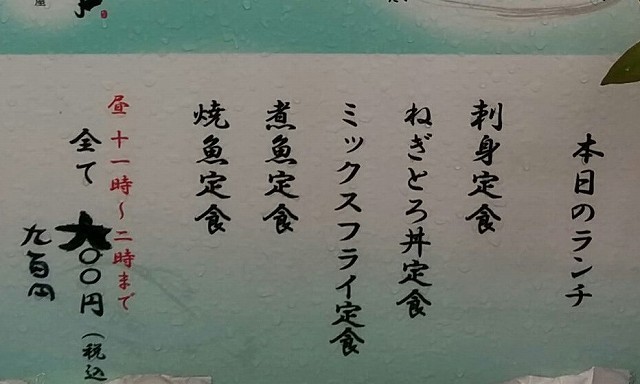 本日のランチ
刺身定食
ねぎとろ丼定食
ミックスフライ定食
煮魚定食
焼魚定食
昼 十一時〜二時まで
全て 六〇〇円(税込
九百円